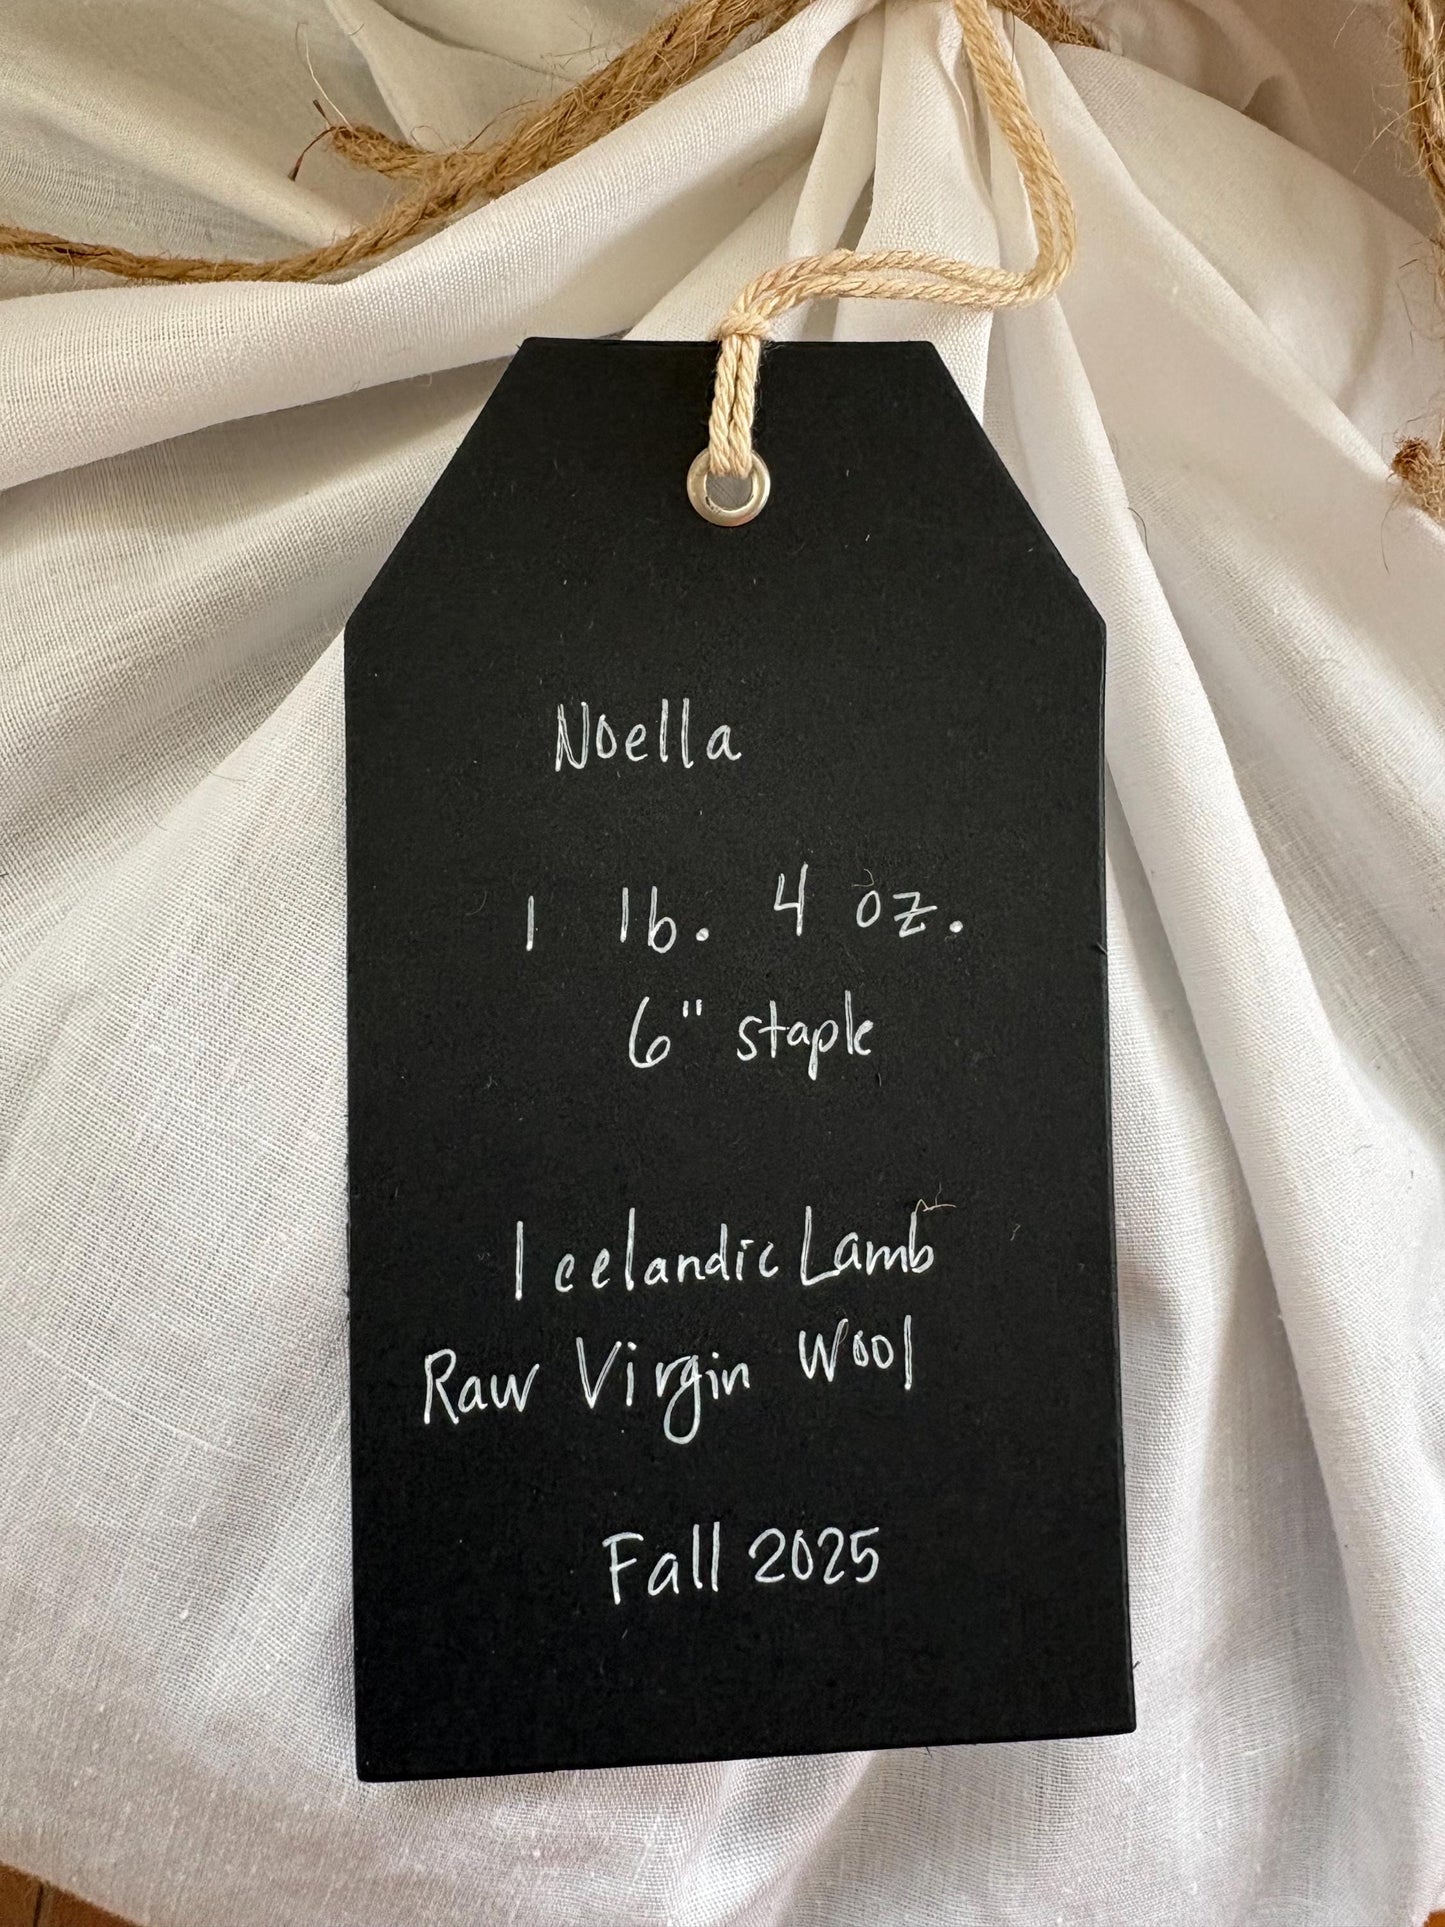 Noella
1 lb. 4 oz.
6" staple
Icelandic Lamb
Raw Virgin Wool
Fall 2025